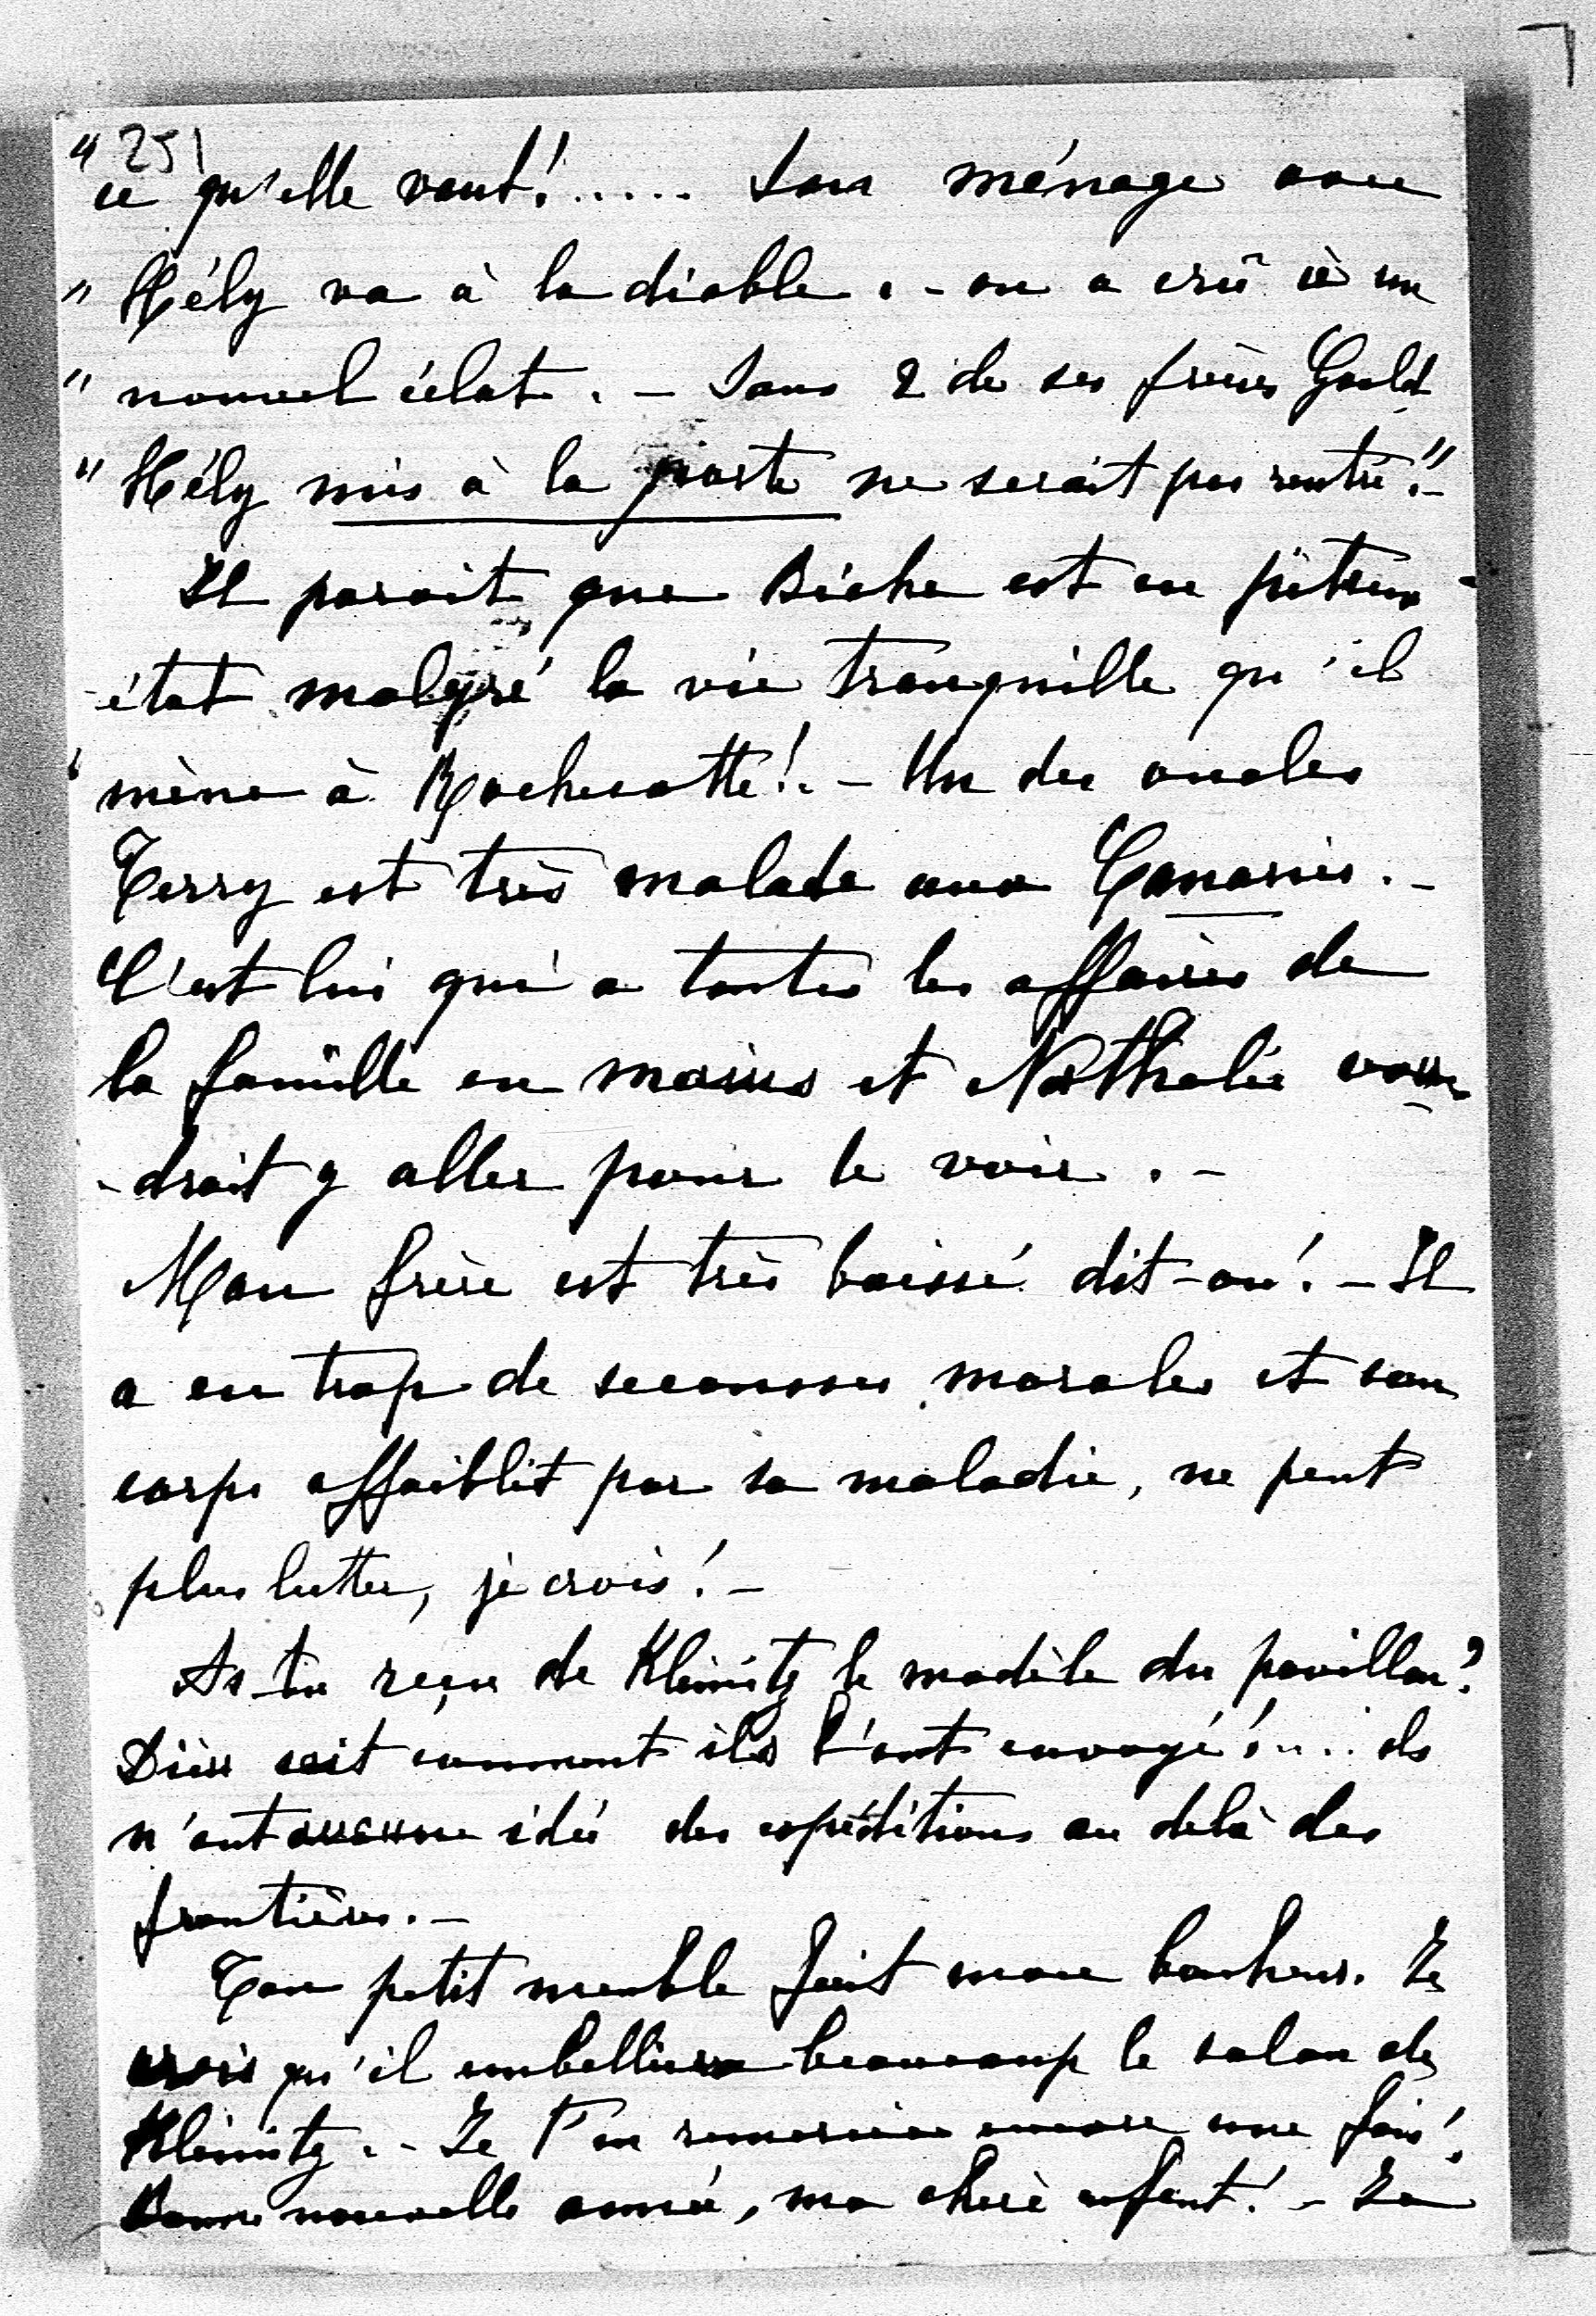 251
" ce qu'elle vaut!..... Son ménage avec
" Hély va à la diable. - on a crû à un
" nouvel éclat. - Sans 2 de ses frères Gould
" Hély mis à la porte ne serait pas rentré." -
Il parait que Biche est en piteux
état malgré la vie tranquille qu'il
mène à Rochecotte!. - Un des oncles
Terry est très malade aux Canaries. -
C'est lui qui a toutes les affaires de
la famille en mains et Nathalie vou-
-drait y aller pour le voir. -
Mon frère est très baissé dit-on!. - Il
a eu trop de secousses morales et son
corps affaiblit par sa maladie, ne peut
plus lutter, je crois!. -
As-tu reçu de Kleinitz le modèle du pavillon?
Dieu sait comment ils l'ont envoyé!.... ils
n'ont aucune idée des expéditions au delà des
frontières. -
Ton petit meuble fait mon bonheur. Je
crois qu'il embellira beaucoup le salon de
Kleinitz. - Je t'en remercie encore une fois!.
Bonne nouvelle année, ma chère enfant! - Je